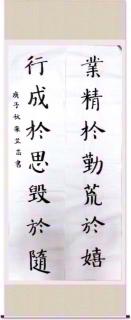 業精於勤荒於嬉
行成於思毀於隨
庚子秋朱芝昌書